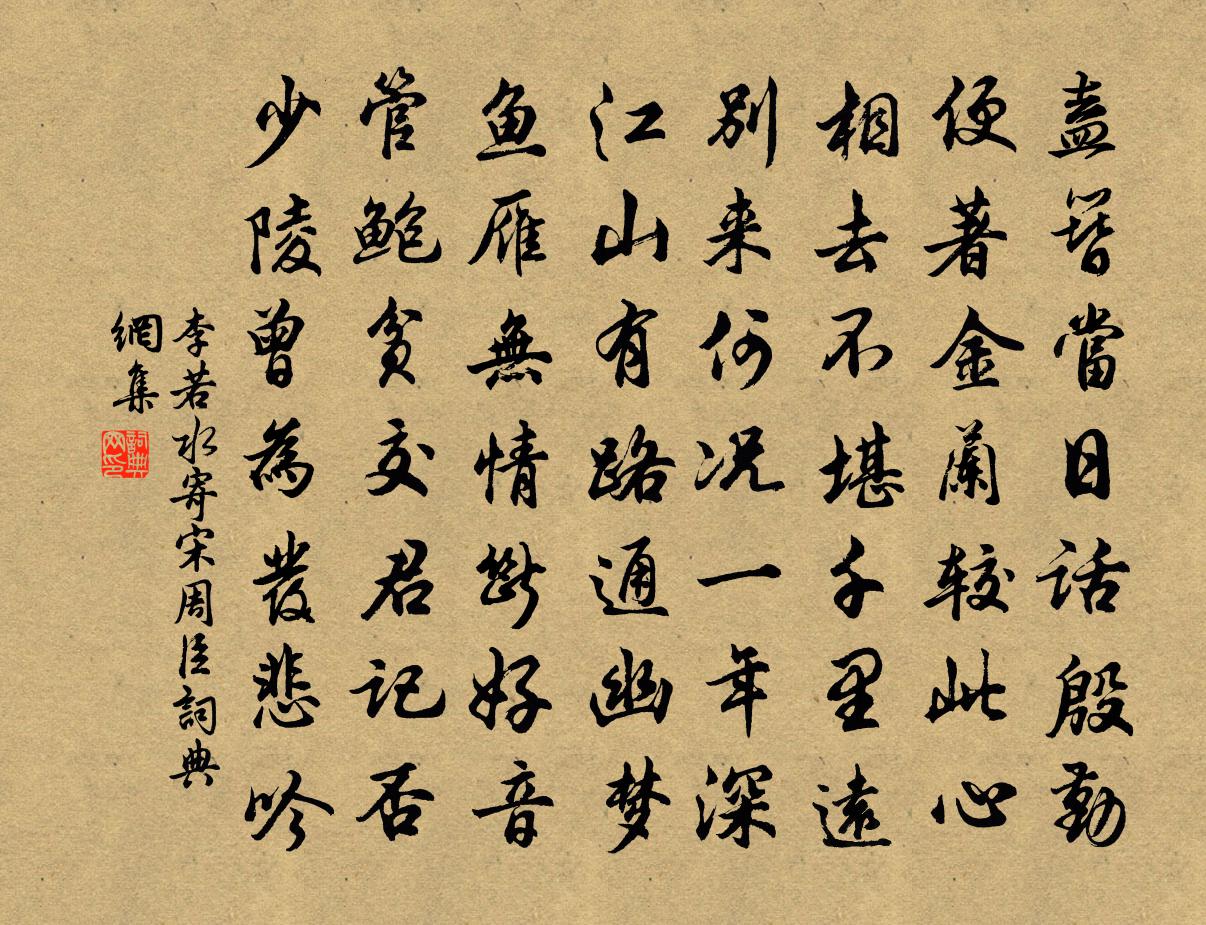 盍簮當日話殷勤
便著金蘭较此心
相去不堪千里遠
别来何况一年深
江山有路通幽梦
鱼雁無情断好音
管鲍貧交君记否
少陵曾為發悲吟
李若水寄宋周臣詞典
網集
詞典
网印